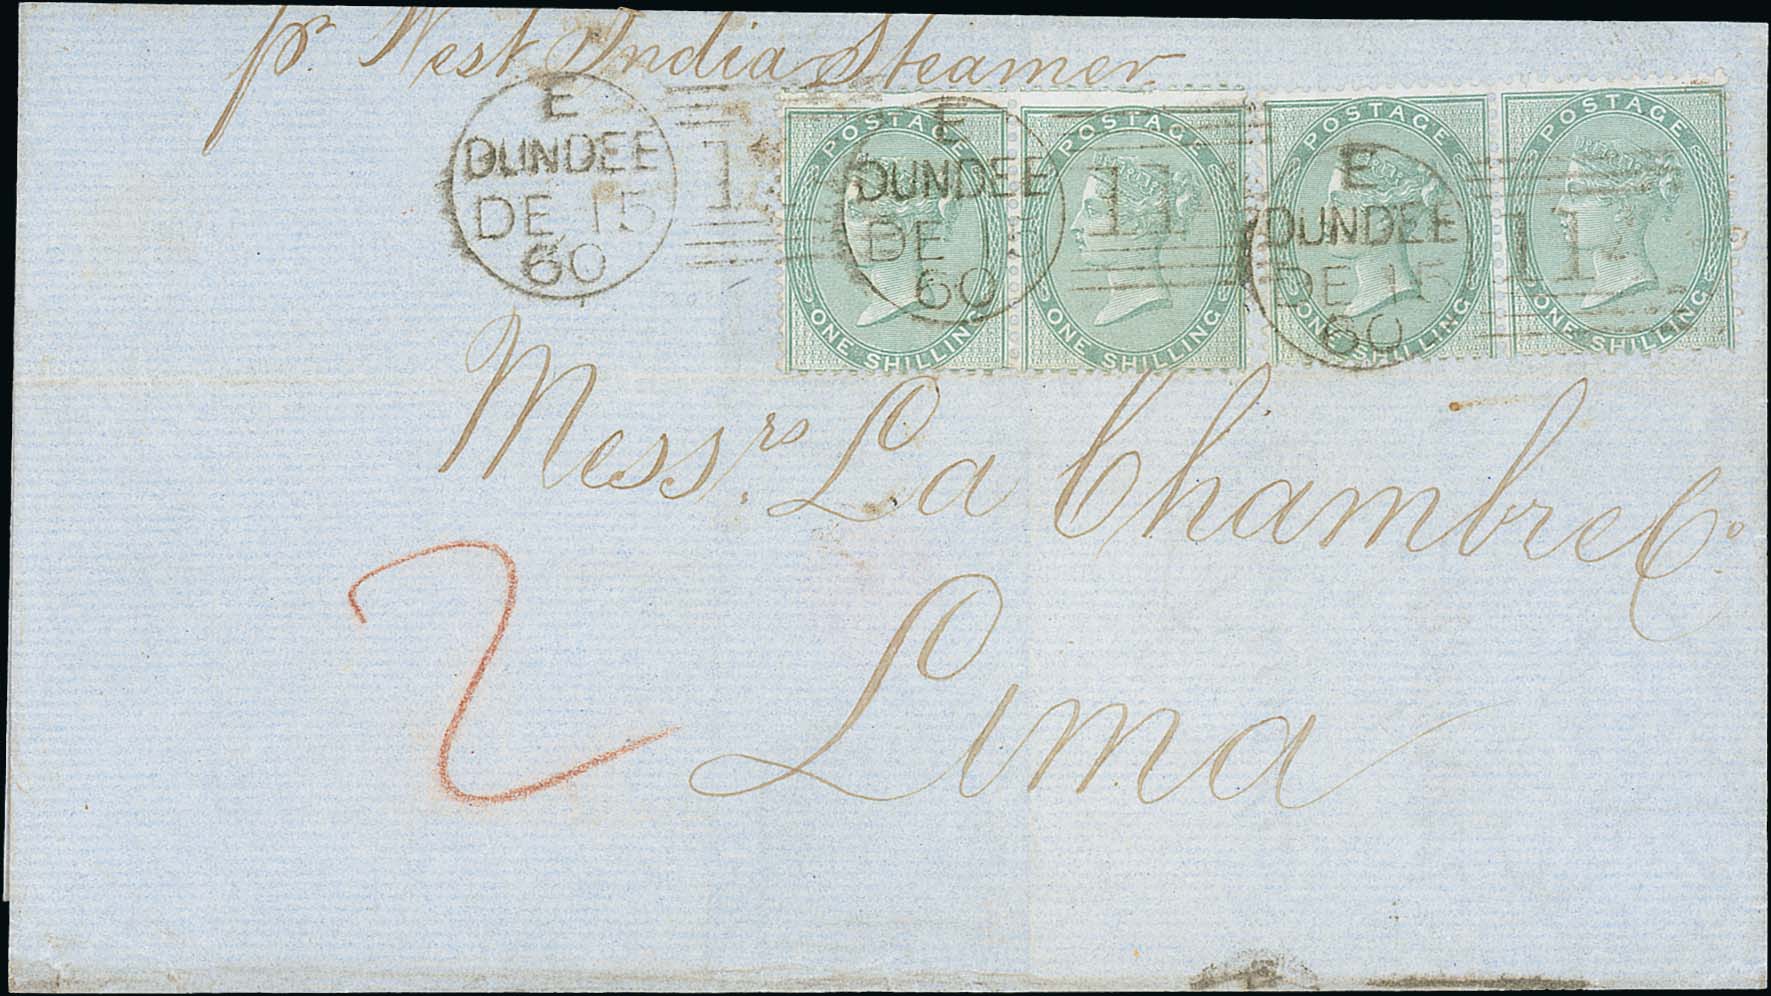 pr. West India Steamer
E
DUNDEE
DE 15
60
E
DUNDEE
DE
60
11
E
DUNDEE
DE 15
60
11
POSTAGE
ONE SHILLING
POSTAGE
ONE SHILLING
POSTAGE
ONE SHILLING
POSTAGE
ONE SHILLING
Messrs. La Chambre Co.
2
Lima